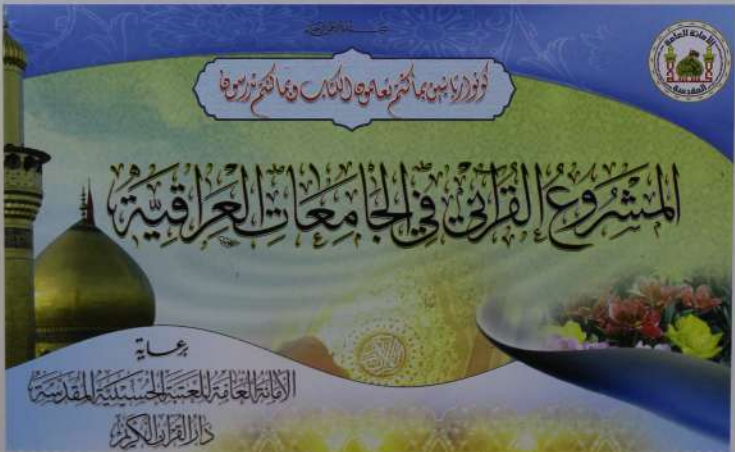 بسم الله الرحمن الرحيم
كونوا ربانيين بما كنتم تعلمون الكتاب وبما كنتم تدرسون
الأمانة العامة
المقدسة
المشروع القرآني في الجامعات العراقية
برعاية
الأمانة العامة للعتبة الحسينية المقدسة
دار القرآن الكريم